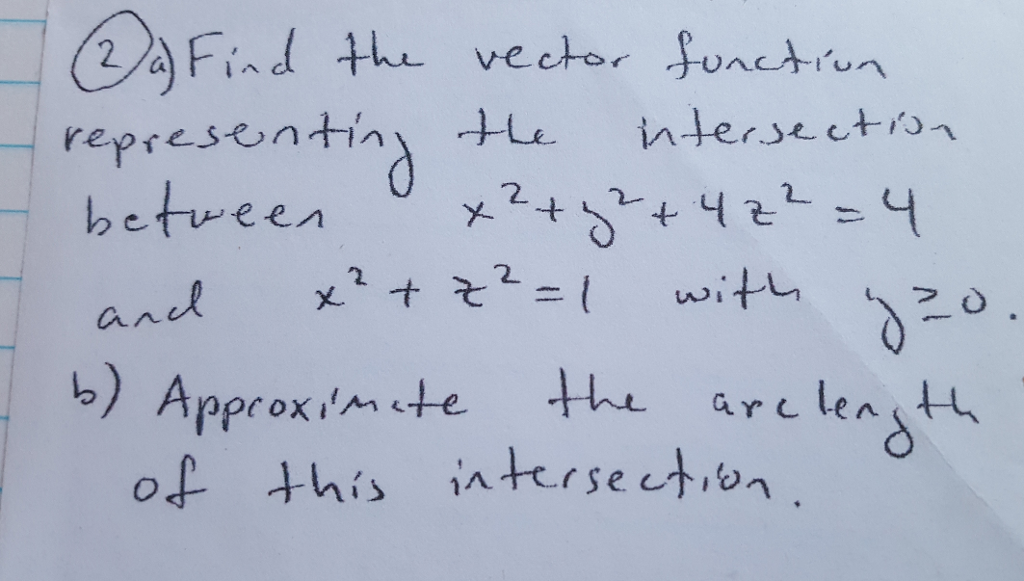 2 a) Find the vector function
representing the intersection
between x² + y² + 4z² = 4
and x² + z² = 1 with y ≥ 0.
b) Approximate the arc length
of this intersection.